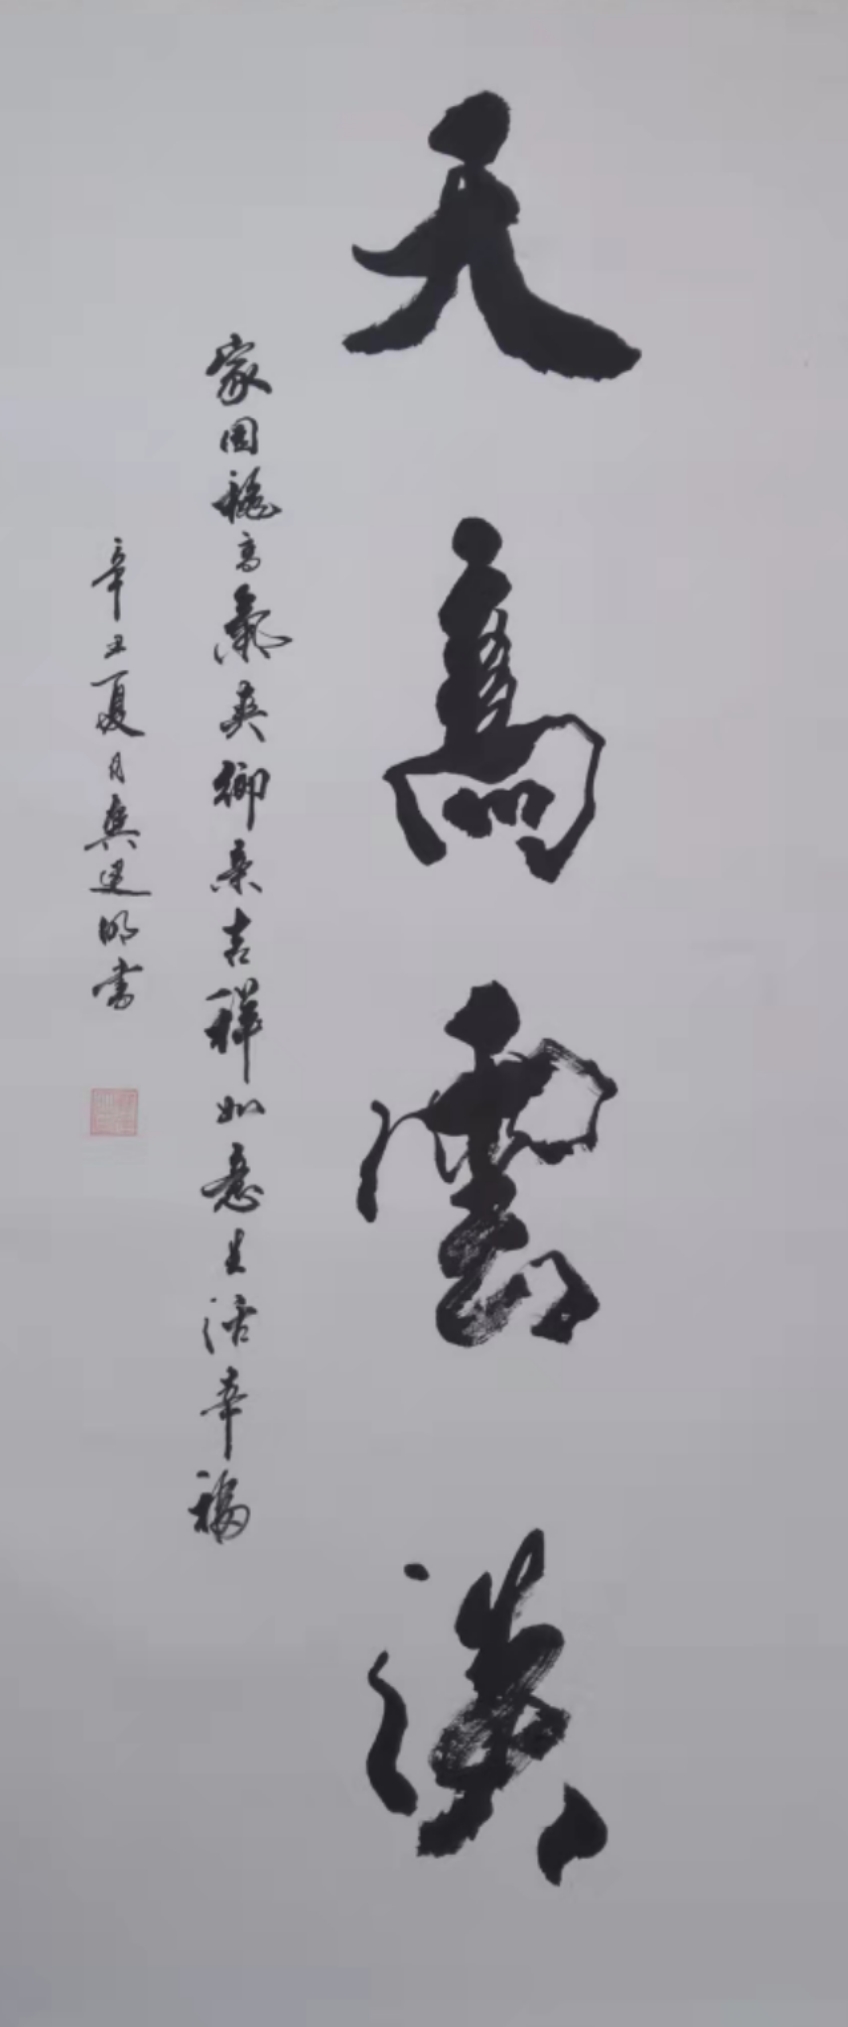 天高雲淡
家國穩高氣爽鄉親吉祥如意生活幸福
辛丑夏月建明書